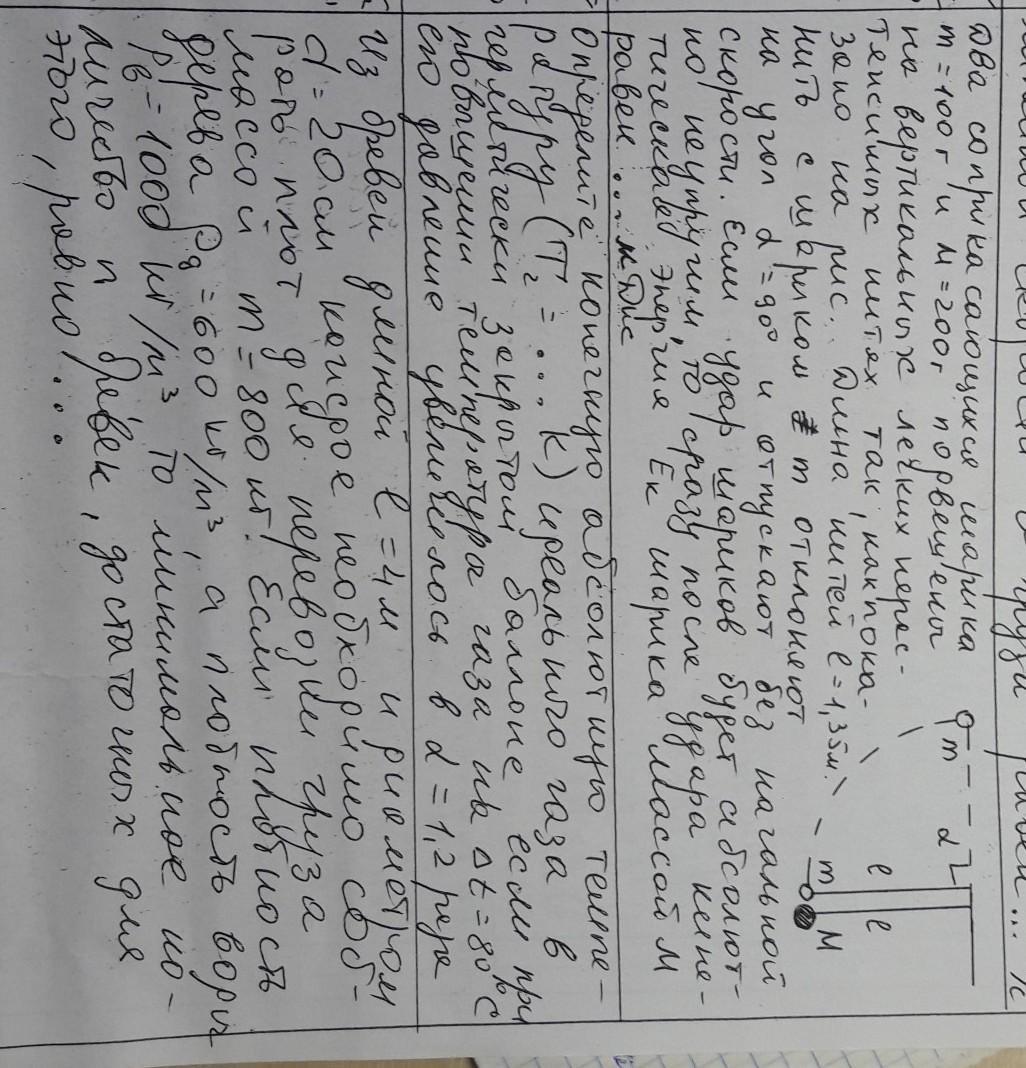 два соприкасающихся шарика
m=100г и M=200г подвешены
на вертикальных легких нерас-
тяжимых нитях так, как пока-
зано на рис. Длина нитей l=1,35м.
нить с шариком m отклоняют
на угол α=90° и отпускают без начальной
скорости. Если удар шариков будет абсолют-
но неупругим, то сразу после удара кине-
тическая энергия Eк шарика массой M
равен ... мДж
m
α
l
l
m
M
Определите конечную абсолютную темпе-
ратуру (T₂ = ... K) идеального газа в
герметически закрытом баллоне если при
повышении температура газа на Δt=80°C
его давление увеличилось в α=1,2 раза
Из бревен длиной l=4м и диаметром
d=20см
необходимо соб-
рать плот для перевозки груза
массой m=800 кг. Если плотность
дерева ρд=600 кг/м³, а плотность воды
ρв=1000 кг/м³ то минимальное ко-
личество n бревен, достаточных для
этого, равно...